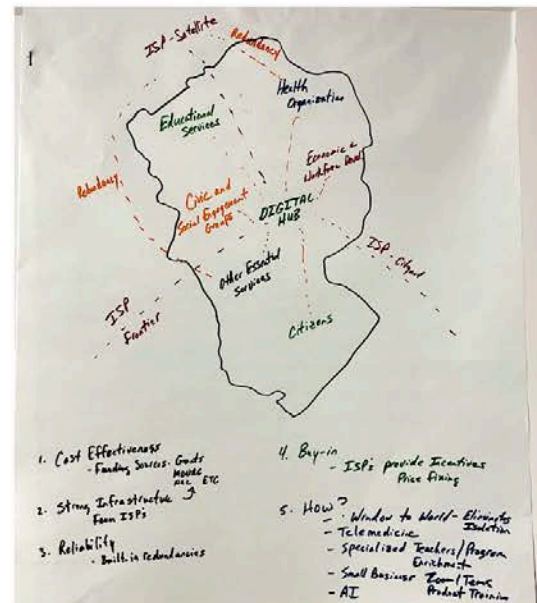 ISP-Satellite
Redundancy
Health
Organization
Educational
Services
Economic &
Workforce Devel.
Redundancy
Civic and
Social Engagement
Groups
DIGITAL
HUB
ISP-Citynet
Other Essential
Services
ISP
Frontier
Citizens
1. Cost Effectiveness
- Funding Sources - Grants
ETC
2. Strong Infrastructure
From ISP's
3. Reliability
- Built in redundancies
4. Buy-in
- ISP's provide Incentives
Price Fixing
5. How?
- Window to World - Eliminates
Isolation
- Telemedicine
- Specialized Teachers/Program
Enrichment
- Small Business Zoom/Teams
Product Training
- AI